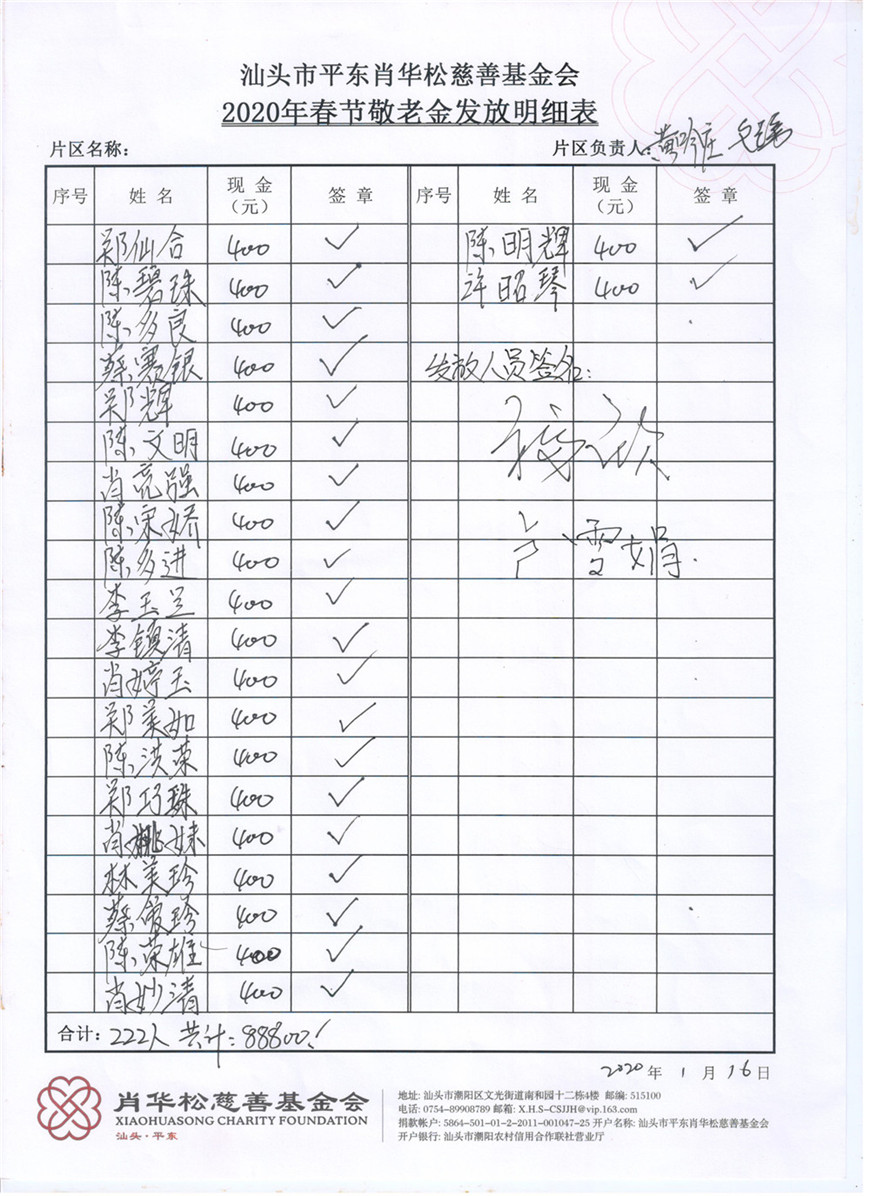 汕头市平东肖华松慈善基金会
2020年春节敬老金发放明细表
片区名称: 片区负责人:
序号 姓名 现金(元) 签章 序号 姓名 现金(元) 签章
郑仙合 400 ✓ 陈明辉 400 ✓
陈碧珠 400 ✓ 许昭琴 400 ✓
陈多良 400 ✓
蔡赛银 400 ✓ 发放人员签名:
郑辉 400 ✓
陈文明 400 ✓
肖亮强 400 ✓
陈宋娇 400 ✓
陈多进 400 ✓ 卢雪娟.
李玉兰 400 ✓
李镇清 400 ✓
肖婷玉 400 ✓
郑美如 400 ✓
陈洪荣 400 ✓
郑巧珠 400 ✓
肖桃妹 400 ✓
林美珍 400 ✓
蔡俊珍 400 ✓
陈荣雄 400 ✓
肖妙清 400 ✓
合计: 222人 共计: 88800!
2020年1月16日
肖华松慈善基金会
XIAOHUASONG CHARITY FOUNDATION
汕头·平东
地址: 汕头市潮阳区文光街道南和园十二栋4楼 邮编: 515100
电话: 0754-89908789 邮箱: X.H.S-CSJJH@vip.163.com
捐款帐户: 5864-501-01-2-2011-001047-25 开户名称: 汕头市平东肖华松慈善基金会
开户银行: 汕头市潮阳农村信用合作联社营业厅